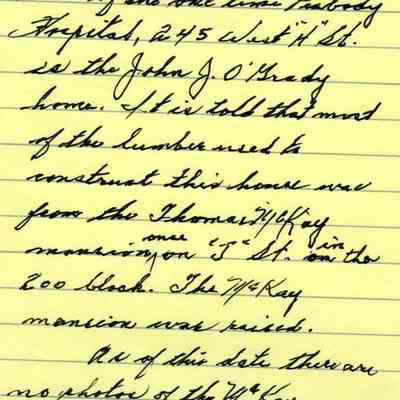 of the one time Peabody
Hospital, 245 West "H" St.
is the John J. O'Grady
home. It is told that most
of the lumber used to
construct this house was
from the Thomas McKay
mansion, once on "J" St. in on the
200 block. The McKay
mansion was raised.
As of this date there are
no photos of the McKay